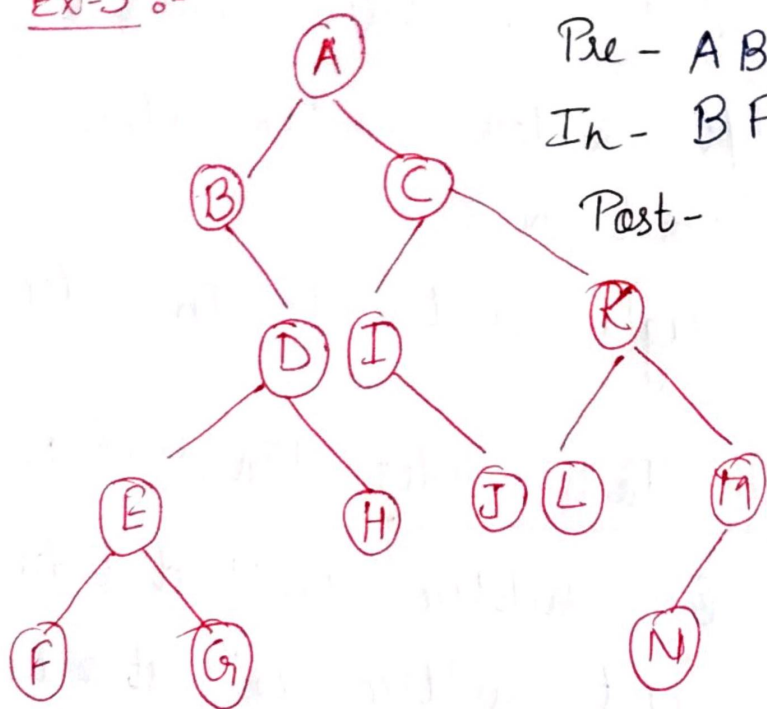 Ex-3 :-
Pre - A B
In - B F
Post -
A
B C
D I K
E H J L M
F G N